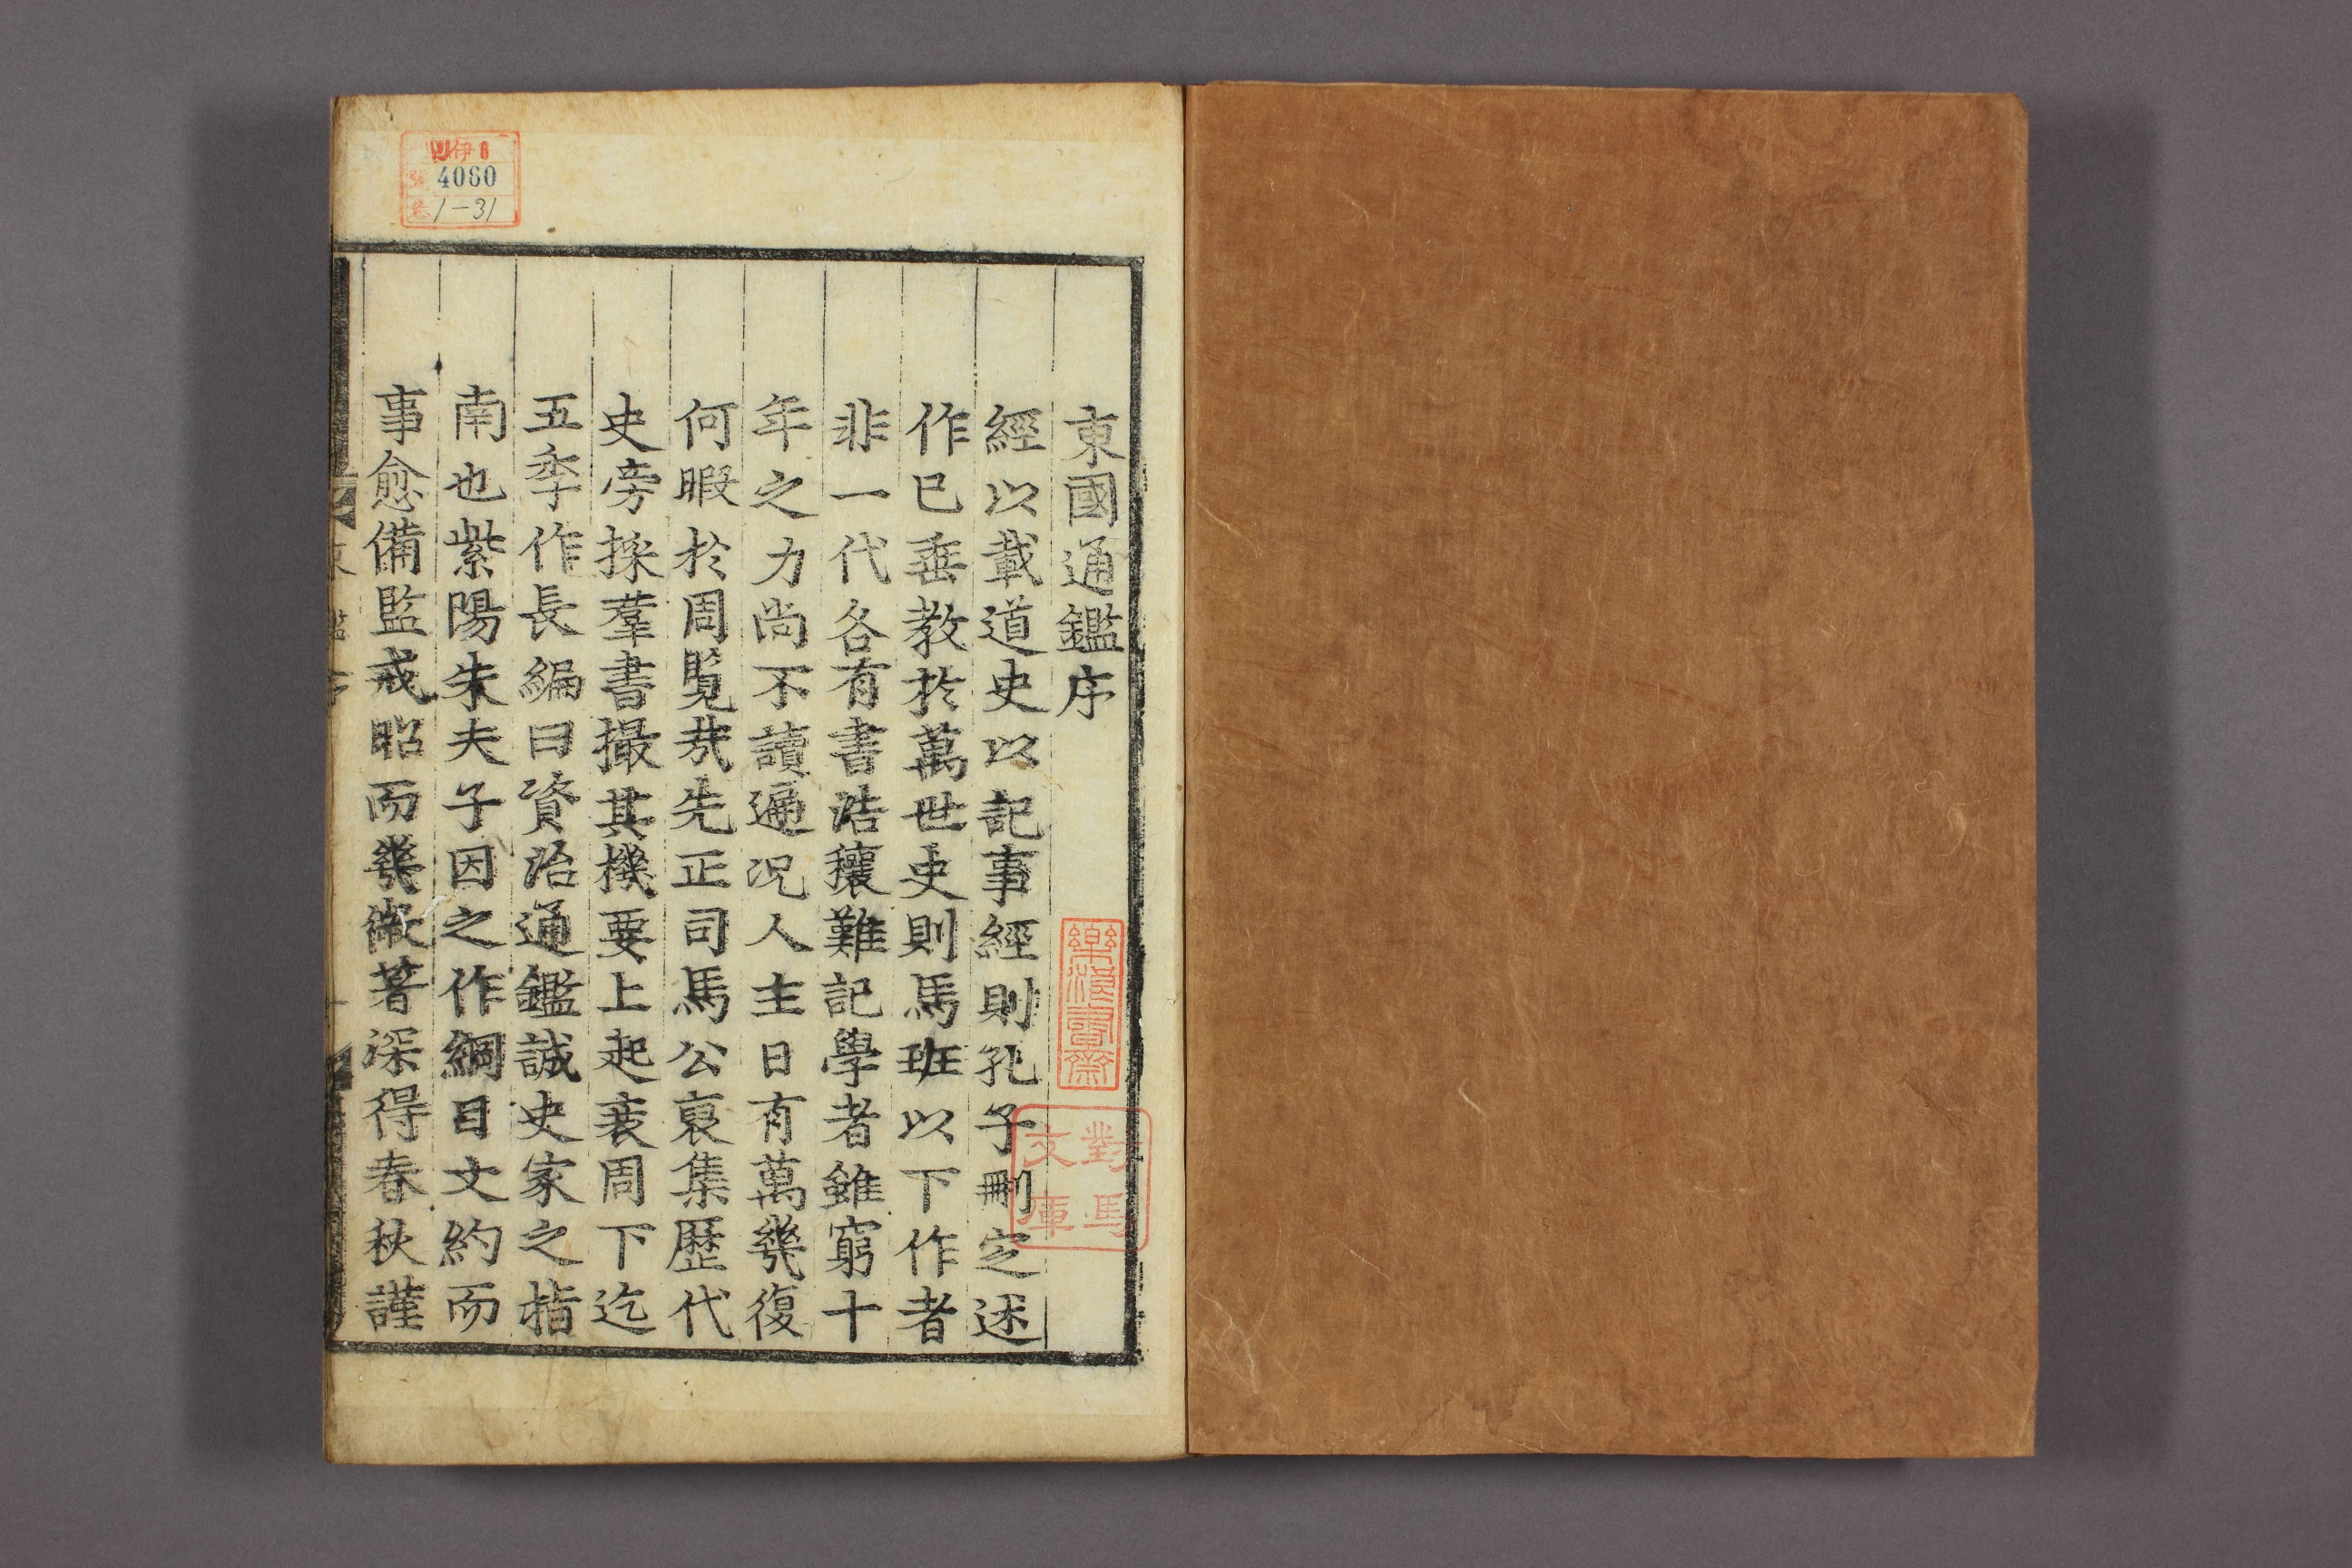 東國通鑑序
經以載道史以記事經則孔子刪定述
作已垂教於萬世史則馬班以下作者
非一代各有書浩穰難記學者雖窮十
年之力尚不讀遍况人主日有萬幾復
何暇於周覧㢤先正司馬公裒集歷代
史旁採羣書撮其機要上起衰周下迄
五季作長編曰資治通鑑誠史家之指
南也紫陽朱夫子因之作綱目文約而
事愈備監戒昭而幾微著深得春秋謹
伊6
4060
1-31
對馬
文庫